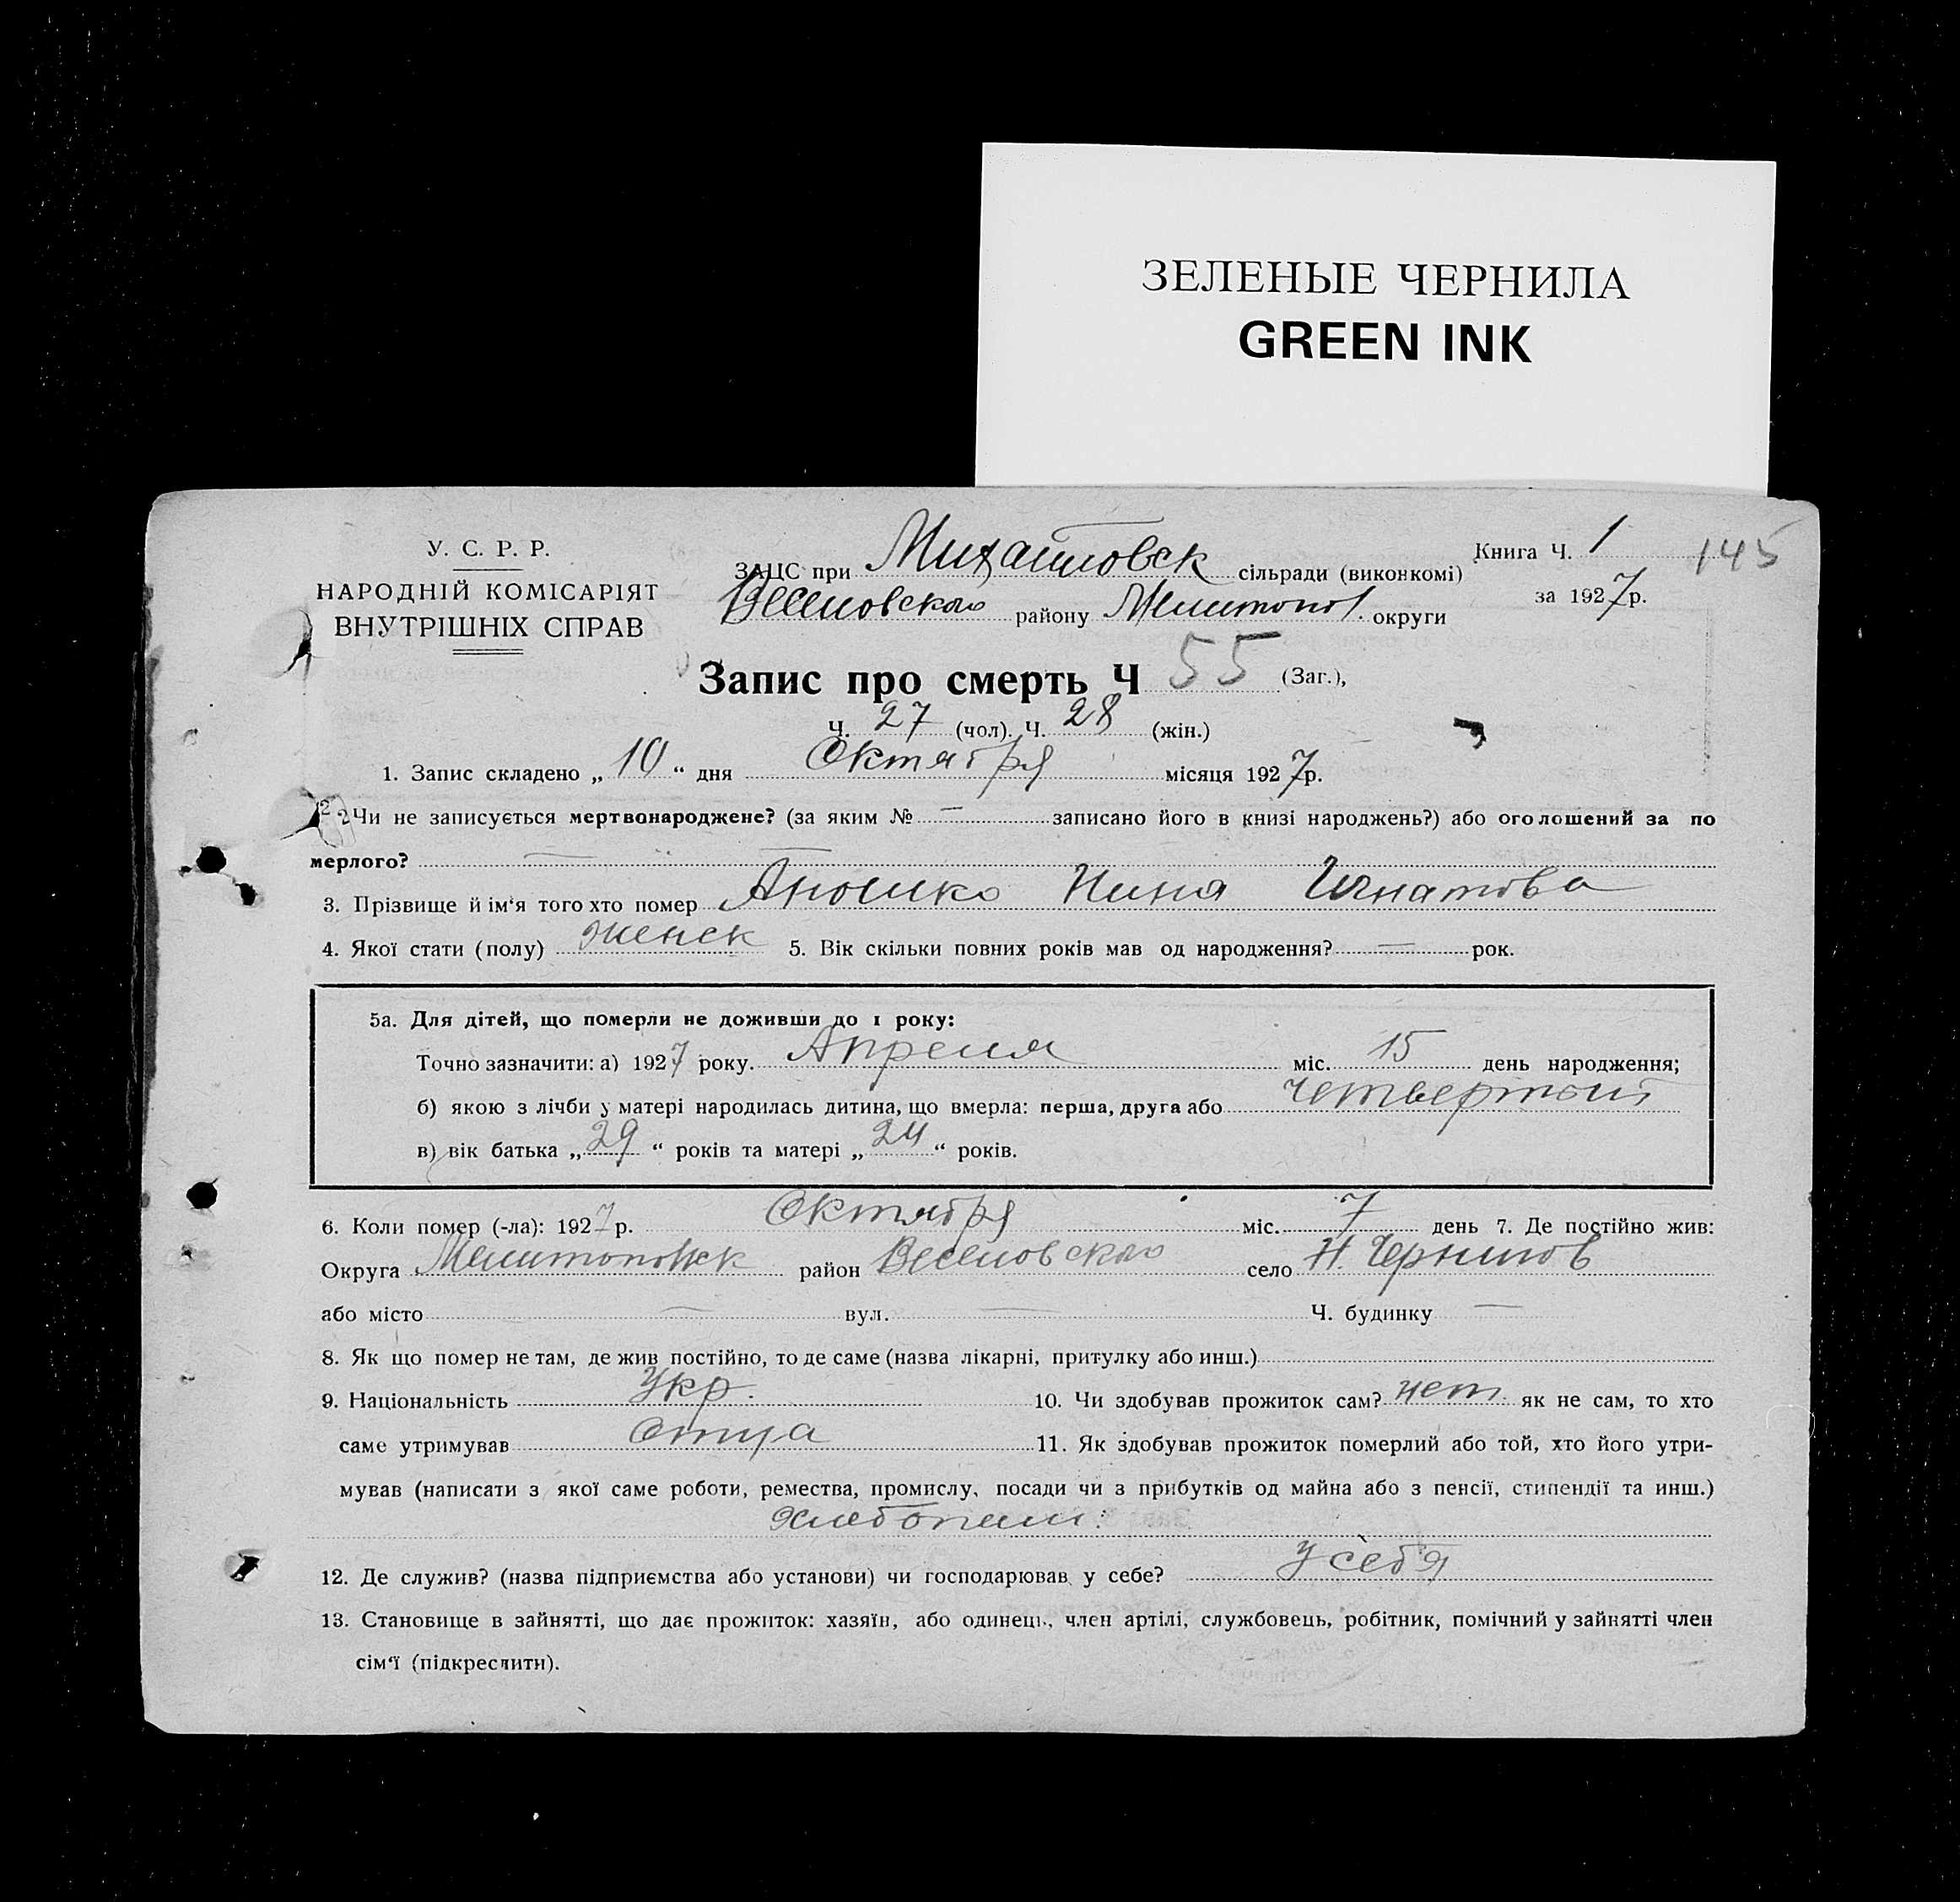 ЗЕЛЕНЫЕ ЧЕРНИЛА
GREEN INK
У. С. Р. Р.
НАРОДНІЙ КОМІСАРІЯТ
ВНУТРІШНІХ СПРАВ
ЗАЦС при Михайловск сільради (виконкомі)
Веселовского району Мелитопол. округи
Книга Ч. 1 145
за 1927 р.
Запис про смерть Ч 55 (Заг.),
Ч. 27 (чол). Ч. 28 (жін.)
1. Запис складено „ 10 “ дня Октября місяця 1927 р.
2 Чи не записується мертвонароджене? (за яким № — записано його в книзі народжень?) або оголошений за по
мерлого? — —
3. Прізвище й ім'я того хто помер Аношко Нина Игнатова
4. Якої стати (полу) женск 5. Вік скільки повних років мав од народження? — рок.
5а. Для дітей, що померли не доживши до 1 року:
Точно зазначити: а) 1927 року. Апреля міс. 15 день народження;
б) якою з лічби у матері народилась дитина, що вмерла: перша, друга або четвертый
в) вік батька „ 29 “ років та матері „ 24 “ років.
6. Коли помер (-ла): 1927 р. Октября міс. 7 день 7. Де постійно жив:
Округа Мелитопольск район Веселовского село Н. Чернигов
або місто — вул. — Ч. будинку —
8. Як що помер не там, де жив постійно, то де саме (назва лікарні, притулку або инш.)
9. Національність Укр. 10. Чи здобував прожиток сам? нет як не сам, то хто
саме утримував отца 11. Як здобував прожиток померлий або той, хто його утри-
мував (написати з якої саме роботи, ремества, промислу, посади чи з прибутків од майна або з пенсії, стипендії та инш.)
хлебопаш.
12. Де служив? (назва підприємства або установи) чи господарював у себе? у себя
13. Становище в зайнятті, що дає прожиток: хазяїн, або одинець, член артілі, службовець, робітник, помічний у зайнятті член
сім'ї (підкреслити).